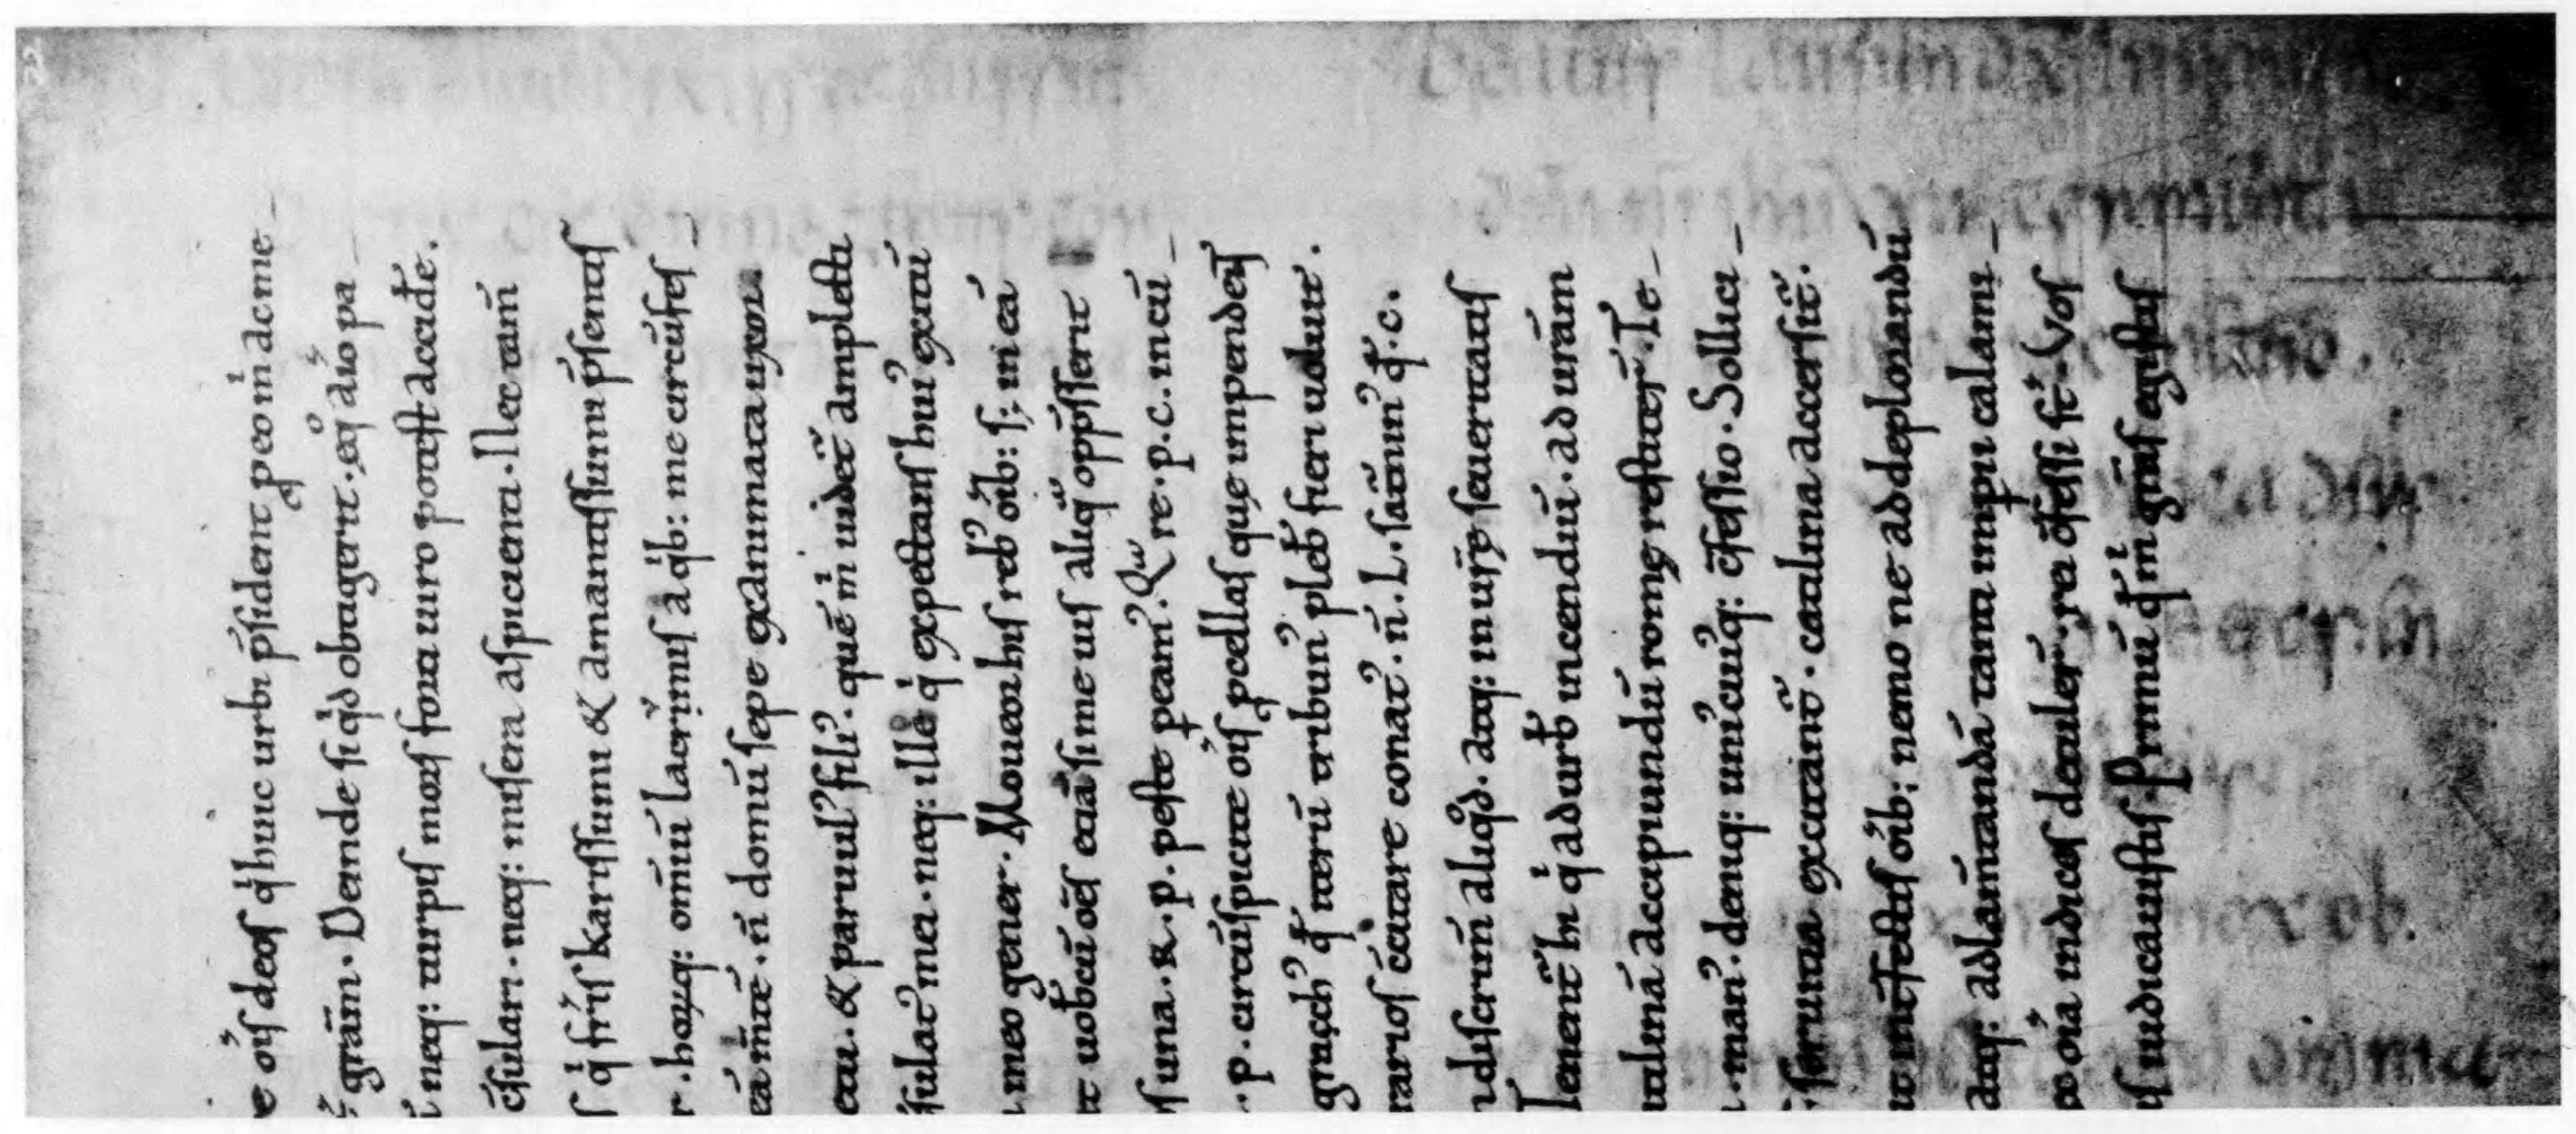 e oı́s deos qⁱ huic urbi p̄sident ꝓ eo mⁱ ac me-
grām. Deinde siqⁱd obtigerit. eqͦ aı̄o pa-
neq: turpis mors forti uiro potest accidẽ.
c̄sulari. neq: misera sapienti. Nec tam̄
s qⁱ fr̄is karissimi & amantissimi p̄sentis
r. horūq: om̄iū lacrimis a qⁱb: me circūses-
eā m̄tē. n̄ domū sepe exanimata uxor.
eta. & paruul' fili'. quē mⁱ uidet̃ amplecti
sulat' mei. neq: ille qⁱ expectans hui' exitū
meo gener. Moueor his reb' oı̄b: s; in eā
t uobcū oēs etiā si me uis aliqᵃ opp̄sserit
s una. R. p. peste ꝑeam'. Qᵃ re. p. c. incū-
. p. circūspicite oı̄s ꝓcellas quę impendent
gracch' qd̄ iterū tribun' pleb̄ fieri uoluit.
rarios c̄citare conat'. n̄. L. saturnin' qd̄. c.
discrim̄ aliqͦd. atq: in urę̄ seueritatis
Tenent̃ hi qⁱ ad urb̄ incendiū. ad urām
tilinā accipiundū romę restiter̄. Te-
. man'. deniq: uni'cuiq: c̄fessio. Sollici-
seruitia excitant̃. catilina accersit̃.
int̃fectis oı̄b; nemo ne ad deplorandū
atq: ad lam̄tandā tanti imꝑii calami-
oı̄a indices detuler̄. rei c̄fessi st̄. Vos
is iudicauistis. Primū qd̄ mⁱ grās egistis